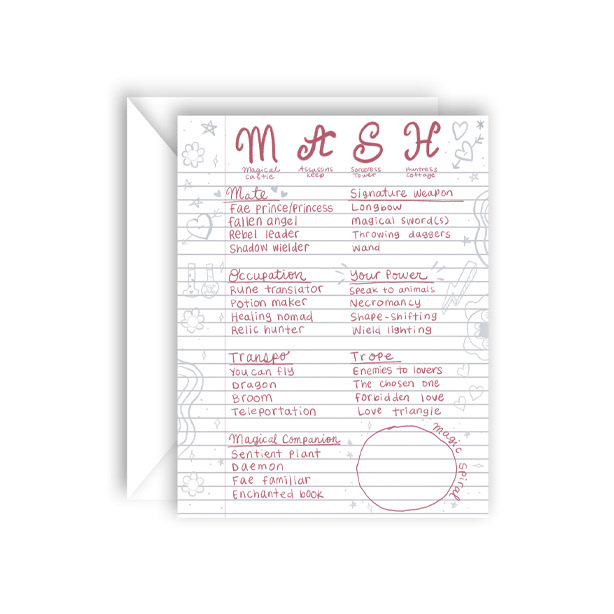 M A S H
Magical Castle
Assassins Keep
Sorceress Tower
Huntress Cottage
Mate
Fae Prince/Princess
Fallen angel
Rebel leader
Shadow wielder
Signature Weapon
Longbow
Magical sword(s)
Throwing daggers
Wand
Occupation
Rune translator
Potion maker
Healing nomad
Relic hunter
Your Power
Speak to animals
Necromancy
Shape-shifting
Wield lighting
Transpo
You can fly
Dragon
Broom
Teleportation
Trope
Enemies to lovers
The chosen one
Forbidden love
Love triangle
Magical Companion
Sentient Plant
Daemon
Fae familiar
Enchanted book
Magic Spiral